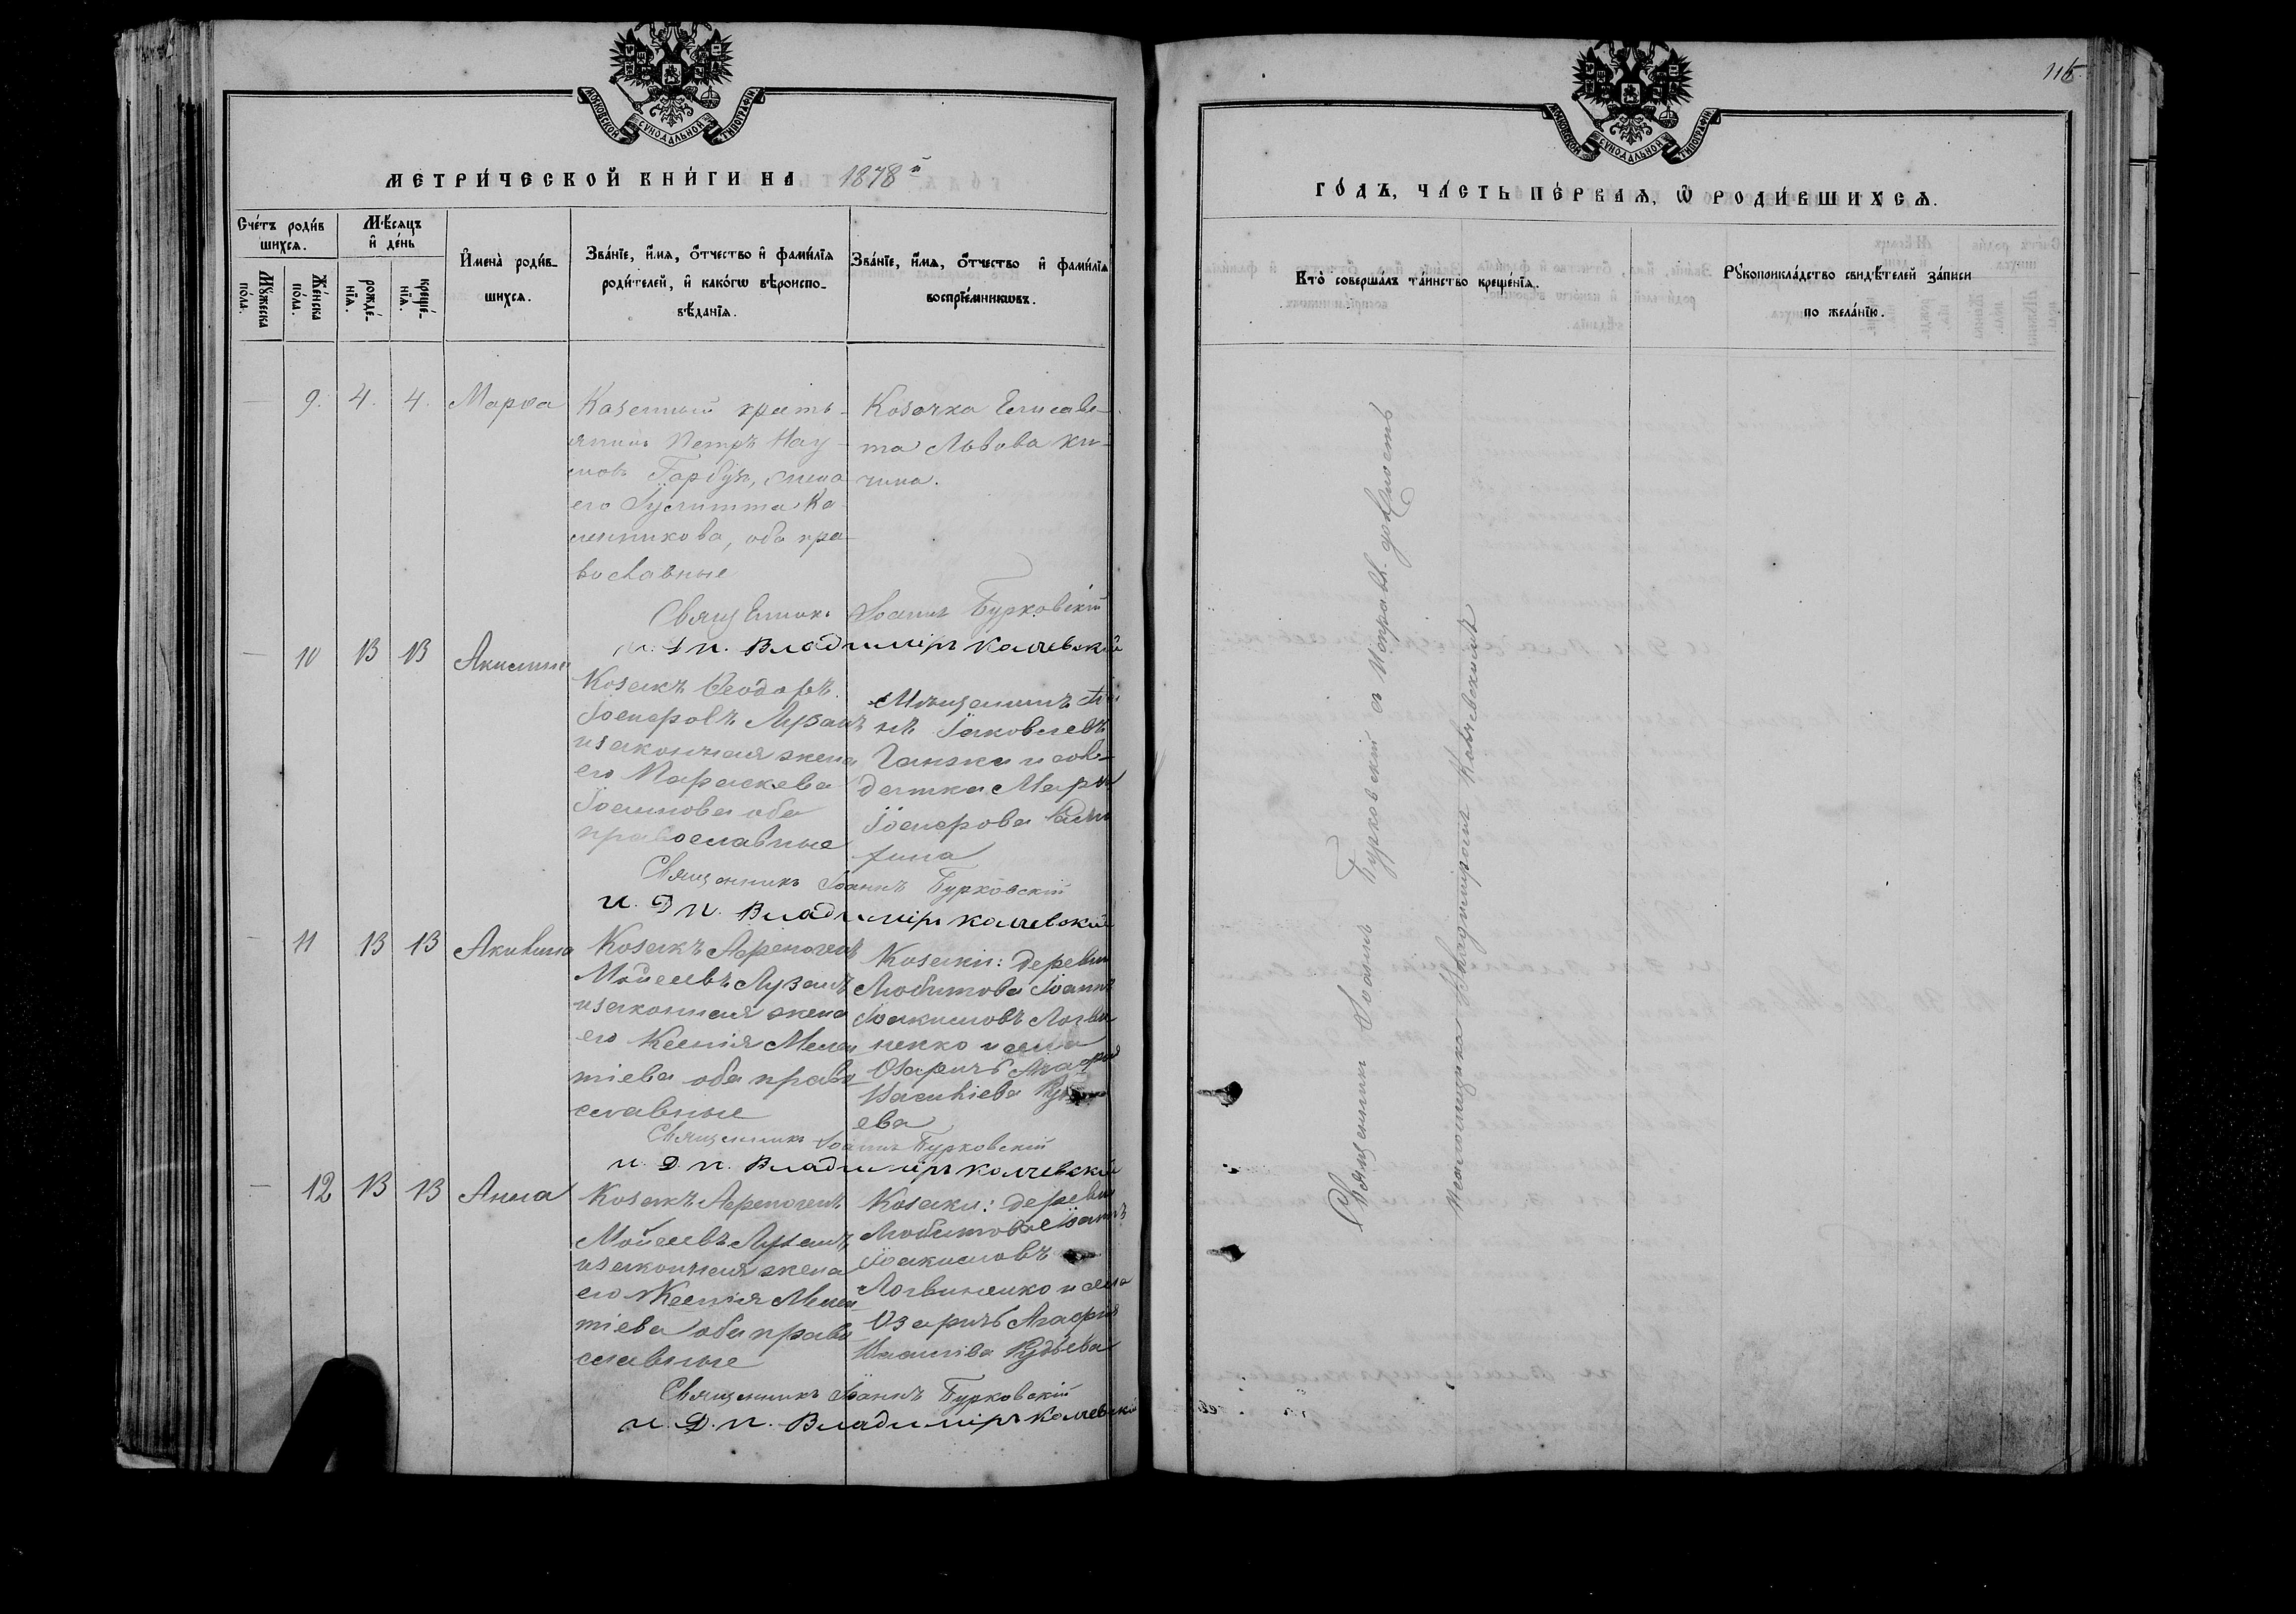 116
МОСКОВСКОЙ СУНОДАЛЬНОЙ ТИПОГРАФІИ
МЕТРИ́ЧЕСКОЙ КНИ́ГИ НА 1878й
Сче́тъ роди́вшихся.
Му́жеска по́ла.
Же́нска по́ла.
Мѣ́сяцъ и҆ де́нь
рожде́нїя.
креще́нїя.
И҆мена̀ роди́вшихся.
Зва́нїе, и҆́мя, ѻ҆́тчество и҆ фами́лїя
роди́телей, и҆ како́гѡ вѣроиспо-
вѣ́данїя.
Зва́нїе, и҆́мя, ѻ҆́тчество и҆ фами́лїя
воспрїе́мникѡвъ.
9. 4. 4. Марѳа
Казенный кресть-
янинъ Петръ Нау-
мовъ Гарбузъ, жена
его Іулитта Ка
никова, оба пра-
вославные
Козачка Елисаве-
та Львова Ки-
чина.
Священникъ Іоаннъ Бурковскій
и. д. п. Владимиръ
10 13 13 Акилина
Козакъ Ѳеодоръ
Іосифовъ Лузанъ
и законная жена
его Параскева
Іоаннова оба
православные
Мѣщанинъ
Іаковлевъ
и сол-
датка
Іосифова
Священникъ Іоаннъ Бурковскій
и. д. п. Владимиръ
11 13 13 Акилина
Козакъ
Моѵсеевъ Лузанъ
и законная жена
его Ксенія Мелен
тіева оба право
славные
Козаки: деревни
Любитова Іоаннъ
Іоакимовъ Логви
ненко и села
Озаричъ Агафія
Васильева
ева
Священникъ Іоаннъ Бурковскій
и. д. п. Владимиръ
12 13 13 Анна
Козакъ
Моѵсеевъ Лузанъ
и законная жена
его Ксенія Мелен
тіева оба право
славные
Козаки: деревни
Любитова Іоаннъ
Іоакимовъ
Логвиненко и села
Озаричъ Агафія
Рудьева
Священникъ Іоаннъ Бурковскій
и. д. п. Владимиръ
МОСКОВСКОЙ СУНОДАЛЬНОЙ ТИПОГРАФІИ
ГО́ДЪ, ЧА́СТЬ ПЕ́РВАЯ, Ѡ҆ РОДИ́ВШИХСЯ.
Кто̀ соверша́лъ та́инство креще́нїя.
Рꙋкоприкла́дство свидѣ́телей за́писи
по жела́нїю.
Священникъ Іоаннъ Бурковскій съ исправл. должность
псаломщика Владиміромъ